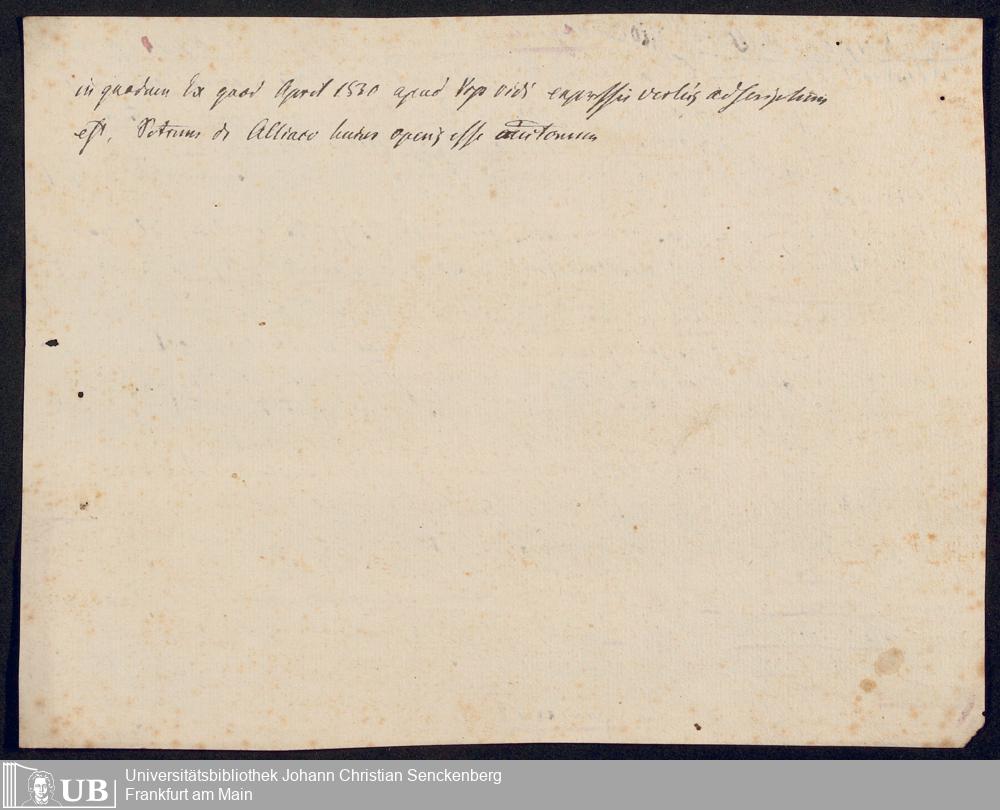 in quodam Ex quod April 1830 apud Vop vidi expressis verbis adscriptum
est, Petrum de Alliaco huius operis esse auctorem
UB Universitätsbibliothek Johann Christian Senckenberg
Frankfurt am Main